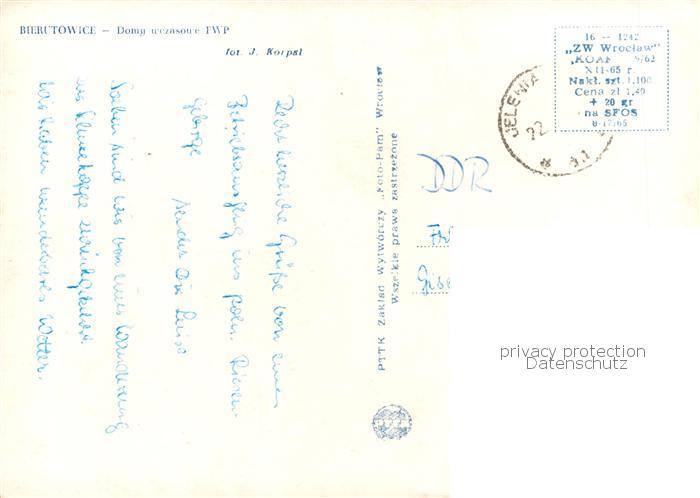 BIERUTOWICE — Domy wczasowe FWP
fot. J. Korpal
Recht herzliche Grüße von einem
Betriebsausflug ins poln. Riesen-
gebirge
sendet Dir Luise
Soeben sind wir von einer Wanderung
zur Schneekoppe zurückgekehrt.
Wir haben wunderbares Wetter.
PTTK Zakład wytwórczy „Foto-Pam" Wrocław
Wszelkie prawa zastrzeżone
16 — 1242
„ZW Wrocław"
9/62
XII-65 r.
Nakł. szt. 1.100
Cena zł 1,40
+ 20 gr
na SFOS
8-17/65
JELENIA
DDR
privacy protection
Datenschutz